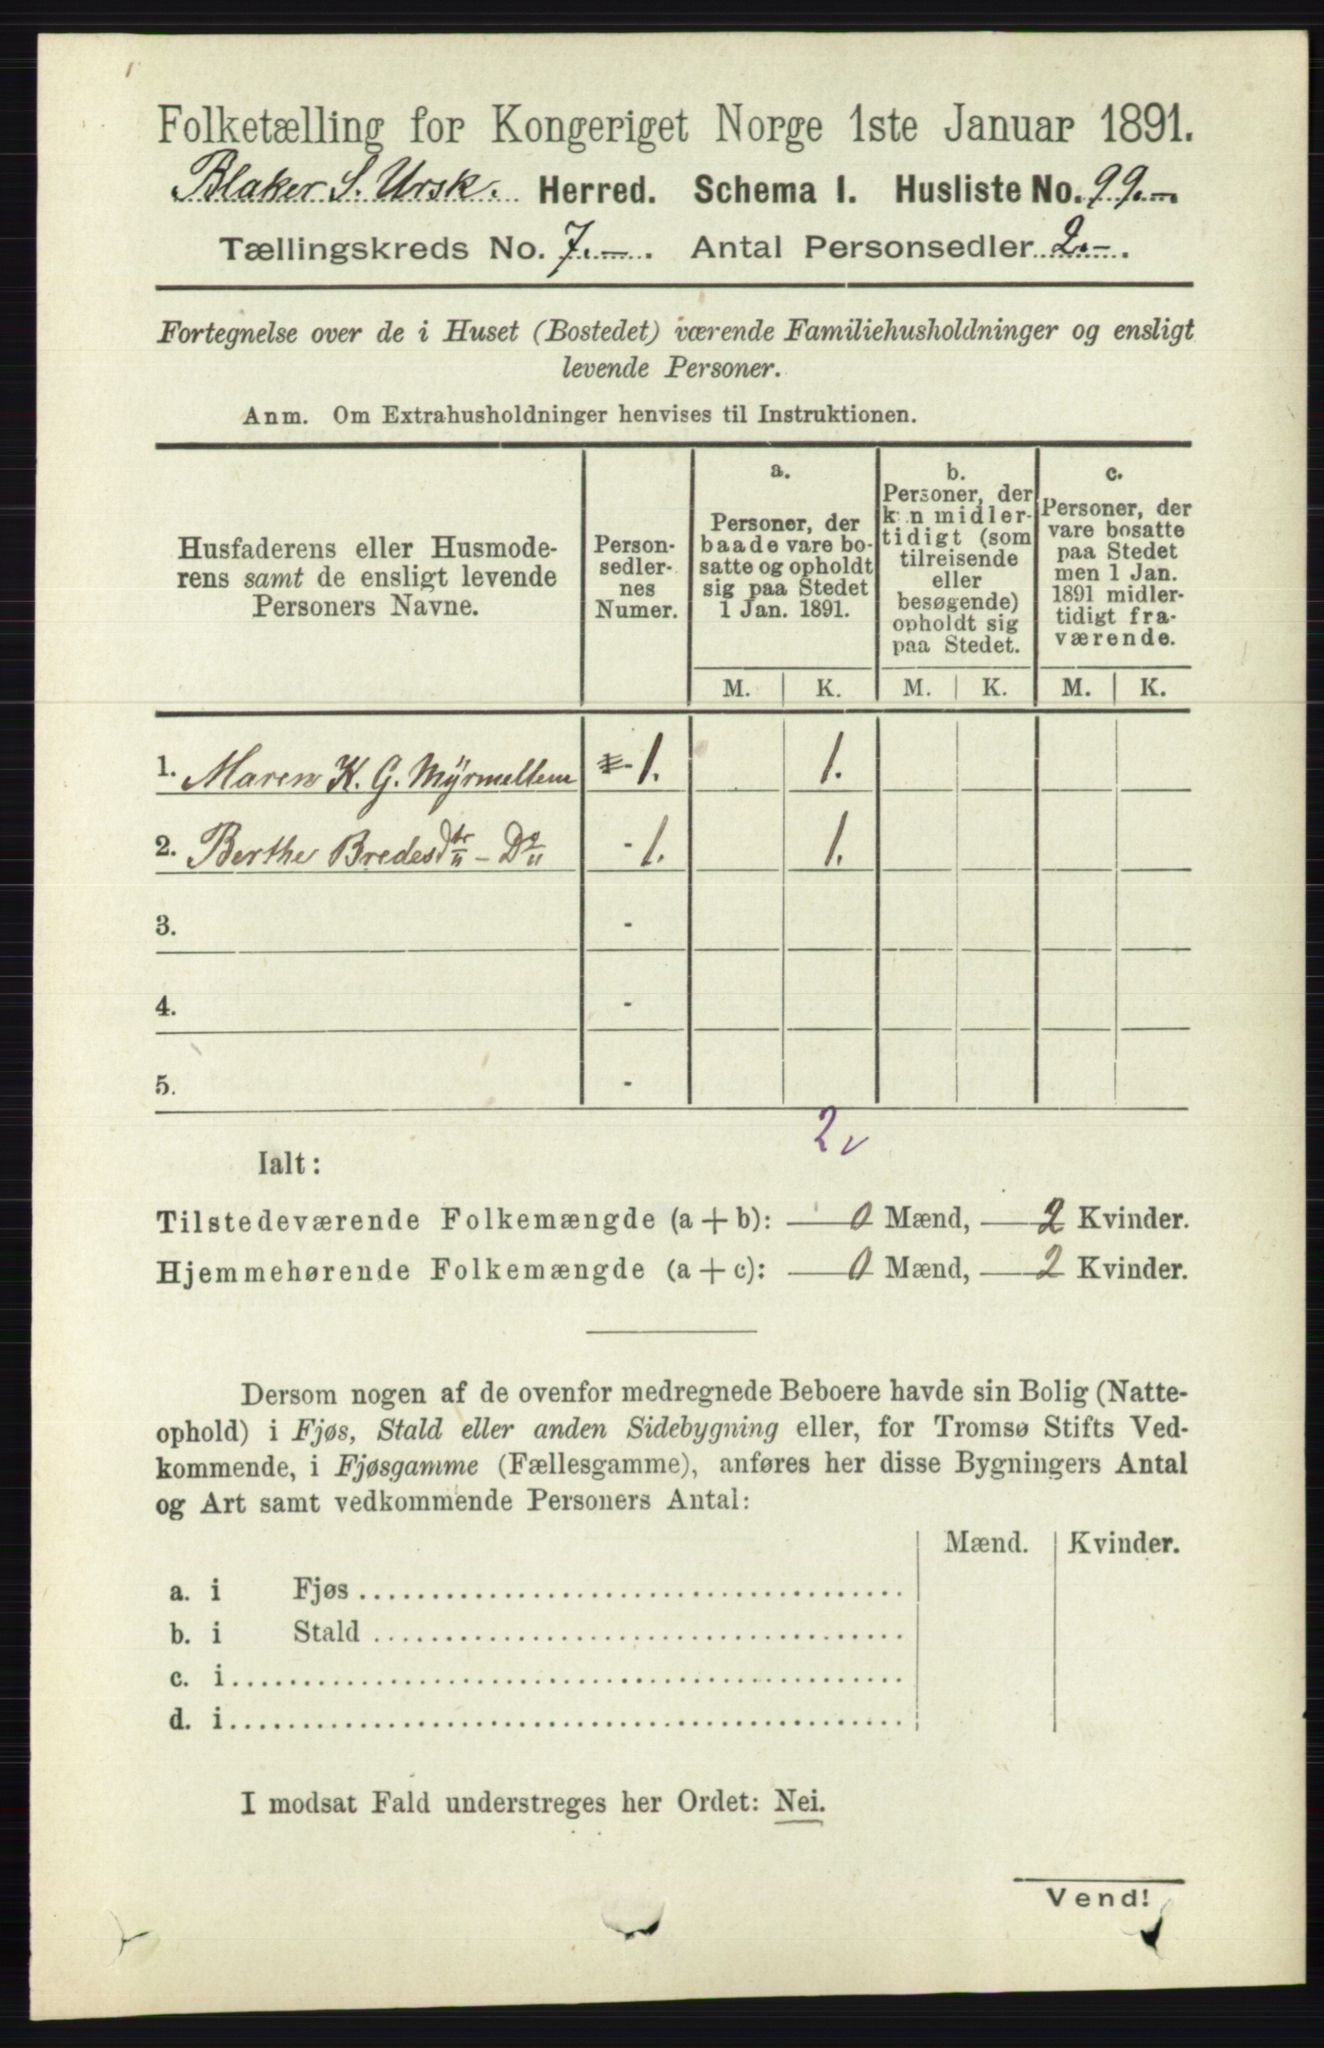 Folketælling for Kongeriget Norge 1ste Januar 1891.
Blaker S. Ursk. Herred. Schema I. Husliste No. 99.-
Tællingskreds No. 7.-. Antal Personsedler 2.-.
Fortegnelse over de i Huset (Bostedet) værende Familiehusholdninger og ensligt
levende Personer.
Anm. Om Extrahusholdninger henvises til Instruktionen.
Husfaderens eller Husmode-
rens samt de ensligt levende
Personers Navne.
Person-
sedler-
nes
Numer.
a.
Personer, der
baade vare bo-
satte og opholdt
sig paa Stedet
1 Jan. 1891.
b.
Personer, der
kun midler-
tidigt (som
tilreisende
eller
besøgende)
opholdt sig
paa Stedet.
c.
Personer, der
vare bosatte
paa Stedet
men 1 Jan.
1891 midler-
tidigt fra-
værende.
M. K. M. K. M. K.
1. Maren K. G. Myrmellem - 1. 1.
2. Berthe Bredesdtr - Do - 1. 1.
3. -
4. -
5. -
2
Ialt:
Tilstedeværende Folkemængde (a+b): 0 Mænd, 2 Kvinder.
Hjemmehørende Folkemængde (a+c): 0 Mænd, 2 Kvinder.
Dersom nogen af de ovenfor medregnede Beboere havde sin Bolig (Natte-
ophold) i Fjøs, Stald eller anden Sidebygning eller, for Tromsø Stifts Ved-
kommende, i Fjøsgamme (Fællesgamme), anføres her disse Bygningers Antal
og Art samt vedkommende Personers Antal:
Mænd. Kvinder.
a. i Fjøs
b. i Stald
c. i
d. i
I modsat Fald understreges her Ordet: Nei.
Vend!